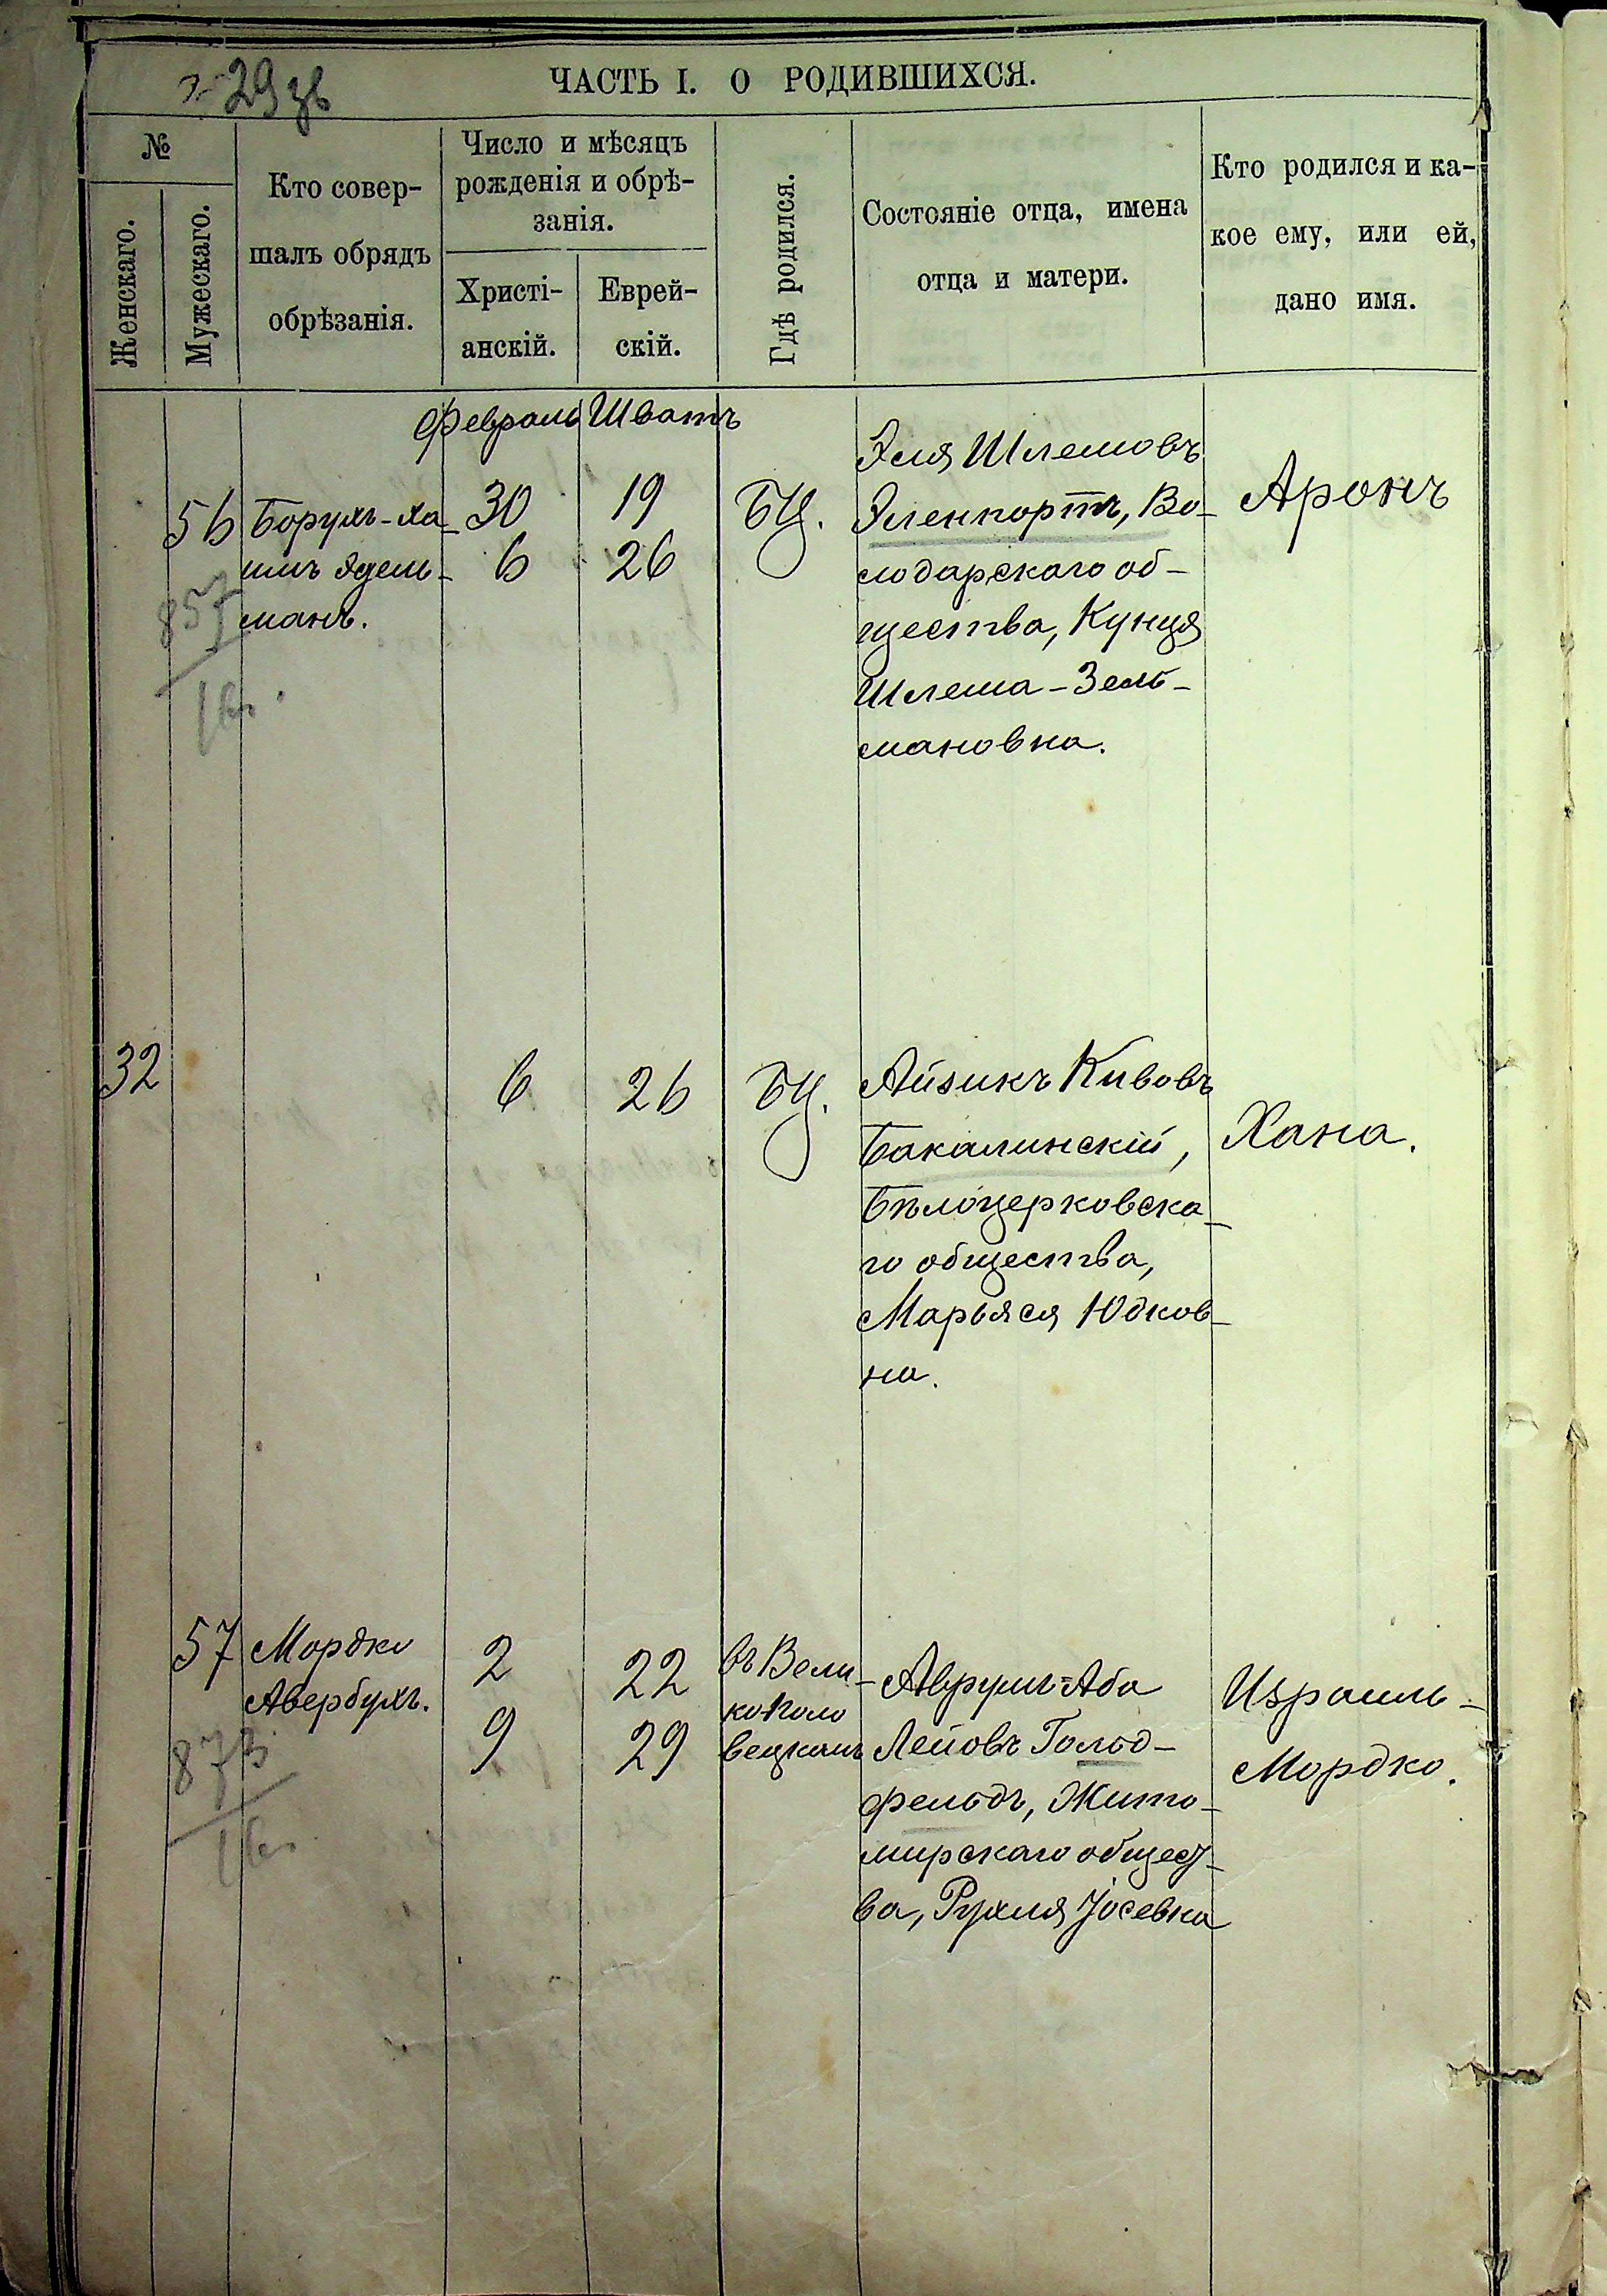 29 зв
ЧАСТЬ I. О РОДИВШИХСЯ.
№
Женскаго.
Мужескаго.
Кто совер-
шалъ обрядъ
обрѣзанія.
Число и мѣсяцъ
рожденія и обрѣ-
занія.
Христі-
анскій.
Еврей-
скій.
Гдѣ родился.
Состояніе отца, имена
отца и матери.
Кто родился и ка-
кое ему, или ей,
дано имя.
Февраль Шватъ
56
Борухъ-Ха-
имъ Эдель-
манъ.
857
30 19
6 26
БЦ.
Эля Шлемовъ
Эленпортъ, Во-
лодарскаго об-
щества, Кунця
Шлема-Зель-
мановна.
Аронъ
32
6 26
БЦ.
Айзикъ Кивовъ
Бакалинскій,
Бѣлоцерковска-
го общества,
Марьяся Юдков-
на.
Хана.
57
Мордко
Авербухъ.
873
2 22
9 29
въ Вели-
кополо
вецкомъ
Аврумъ-Аба
Лейовъ Гольд-
фельдъ, Жито-
мирскаго общест-
ва, Рухля Іосевна
Израиль-
Мордко.